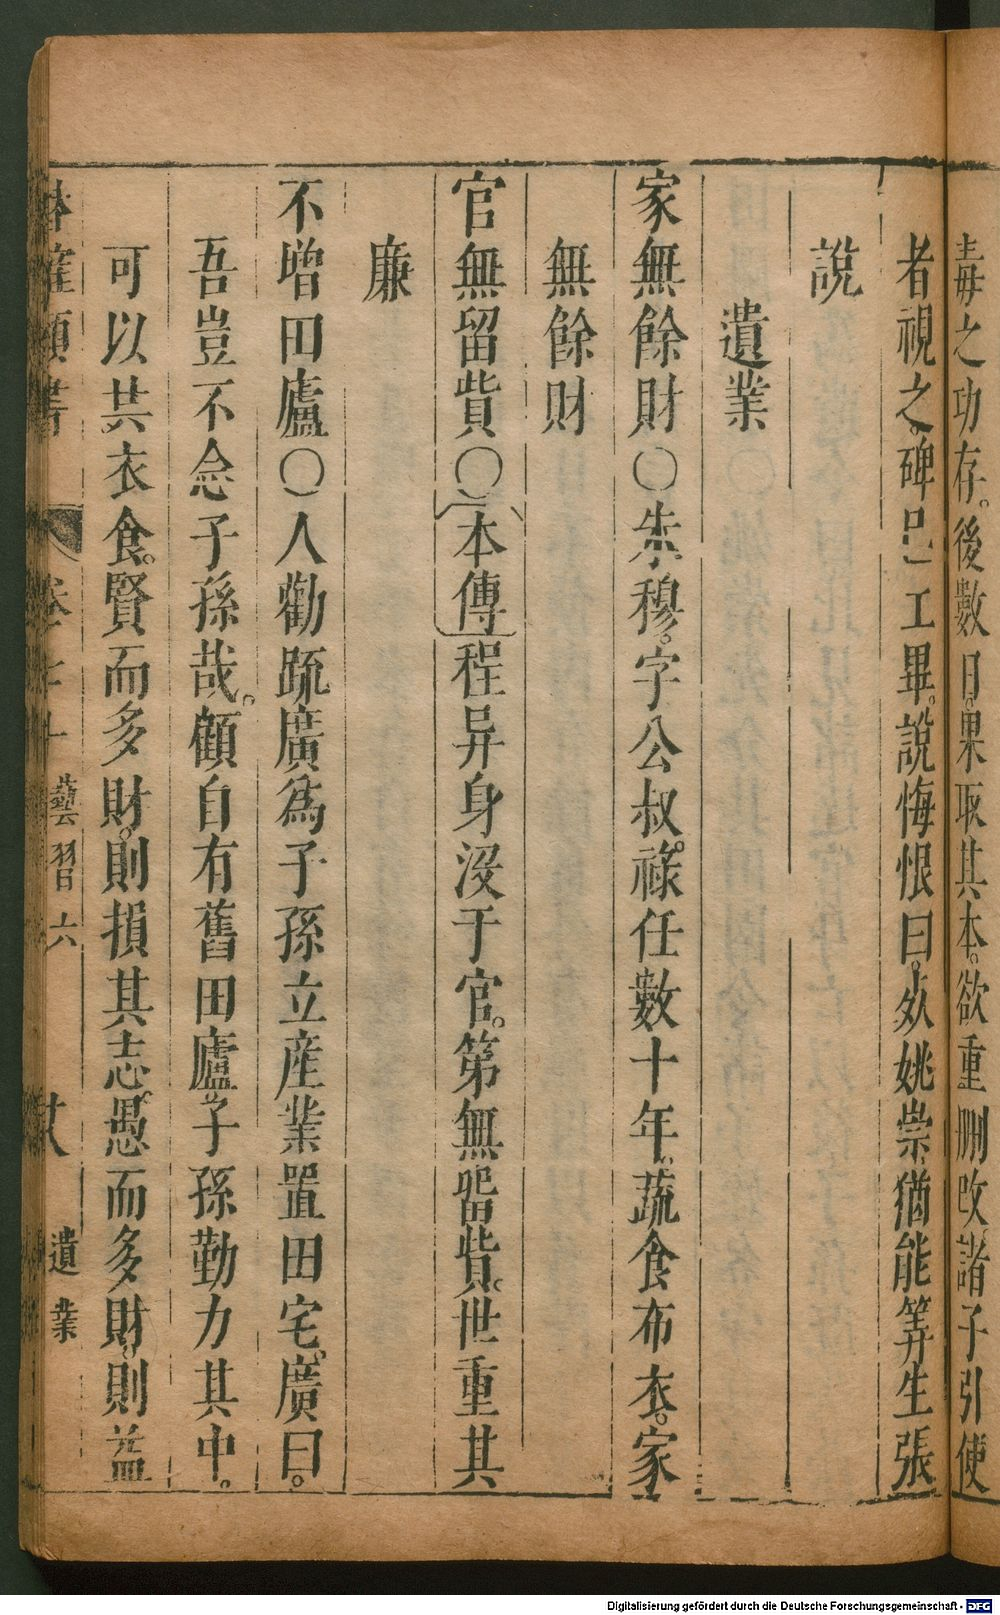 毒之功存。後數日。果取其本。欲重刪改。諸子引使
者視之碑已工畢。說悔恨曰。死姚崇。猶能筭生張
說
遺業
家無餘財〇朱穆。字公叔。祿任數十年。蔬食布衣。家
無餘財
官無留貲〇本傳程异身沒于官。第無畱貲。世重其
廉
不增田廬〇人勸疏廣為子孫立産業置田宅。廣曰。
吾豈不念子孫哉。顧自有舊田廬。子孫勤力其中。
可以共衣食。賢而多財。則損其志。愚而多財。則益
類書 卷七十 藝習六 廿八 遺業
Digitalisierung gefördert durch die Deutsche Forschungsgemeinschaft - DFG